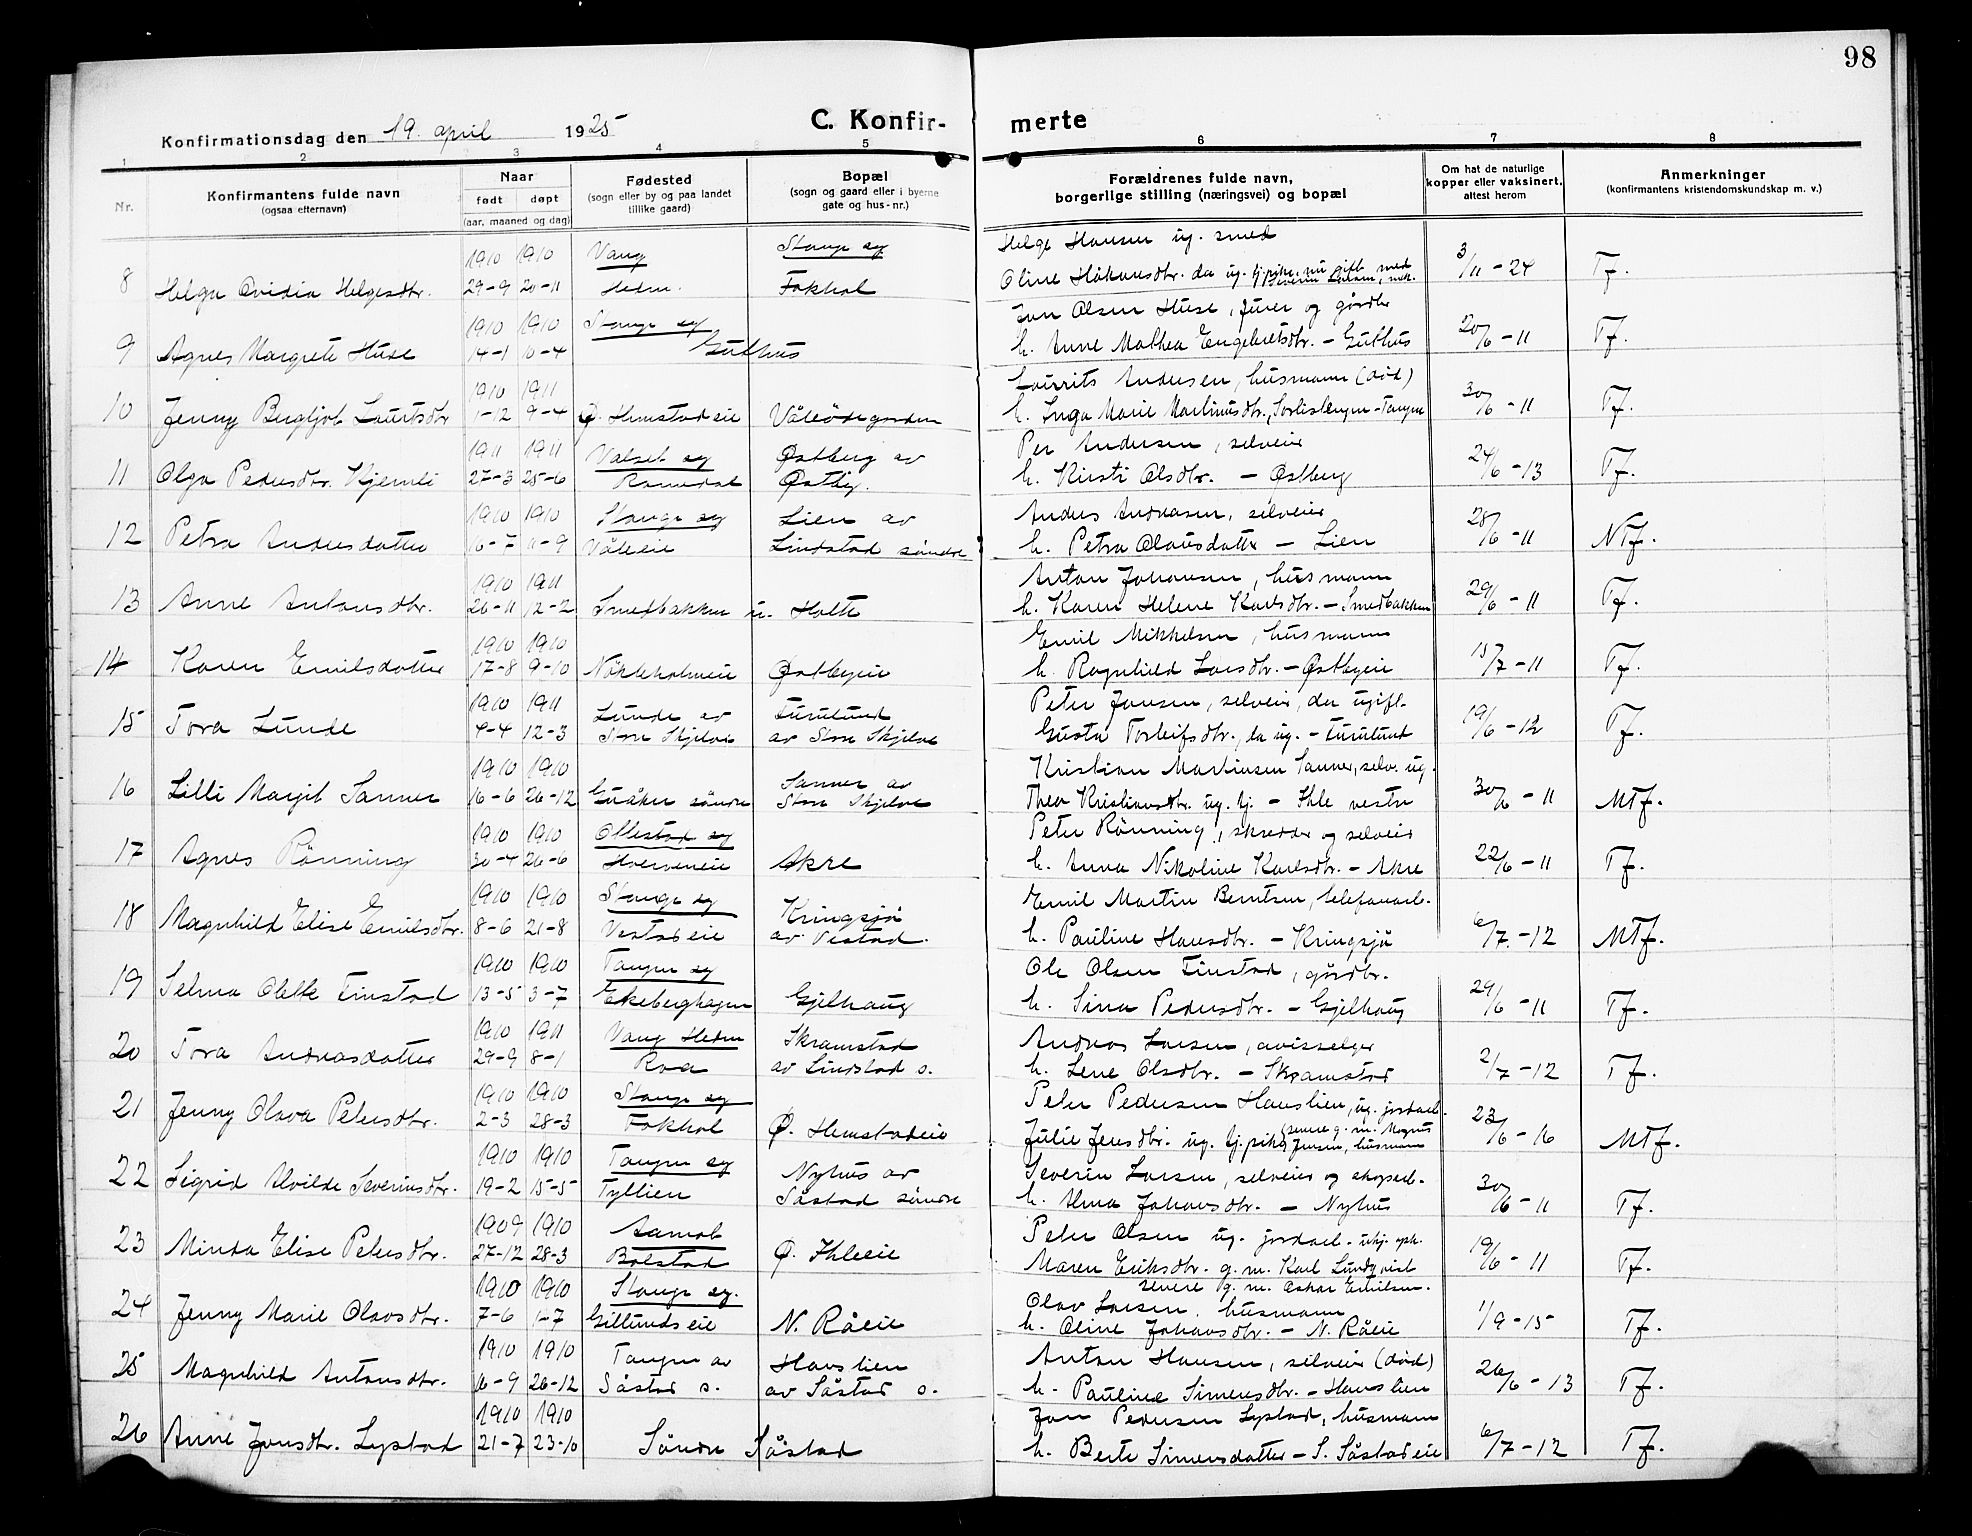 98
Konfirmationsdag den 19. april 1925
C. Konfir-
merte
1 2 3 4 5 6 7 8
Nr.
Konfirmantens fulde navn
(ogsaa efternavn)
Naar
født døpt
(aar, maaned og dag)
Fødested
(sogn eller by og paa landet
tillike gaard)
Bopæl
(sogn og gaard eller i byerne
gate og hus-nr.)
Forældrenes fulde navn,
borgerlige stilling (næringsvei) og bopæl
Om hat de naturlige
kopper eller vaksinert,
attest herom
Anmerkninger
(konfirmantens kristendomskundskap m. v.)
1910 1910 Vang Stange sg Helge Hansen ug. smed
8 Helga Ovidia Helgesdtr. 29-9 20-11 Hedm. Fokhol Oline Håkansdtr. da ug. tj.pike, nu gift med 3/11-24 Tf.
1910 1910 Stange sg Jon Olsen Huse, furer og gårdbr
9 Agnes Margrete Huse 14-1 10-4 Guthus h. Anne Mathea Engebretsdtr. - Guthus 20/6-11 Tf.
1910 1911 Laurits Andersen, husmann (död)
10 Jenny Bergljot Lauritsdtr 1-12 9-4 Ø. Hemstadeie Våleödegarden h. Inga Marie Martinusdtr., Sorlistengen-Tangen 30/6-11 Tf.
1911 1911 Valset sg Østberg av Per Andersen, selveier
11 Olga Pedersdtr. Kjernli 27-3 25-6 Romedal Østby. h. Kirsti Olsdtr. - Østberg 24/6-13 Tf.
1910 1910 Stange sg Lien av Anders Andreasen, selveier
12 Petra Andersdatter 16-7 11-9 Våleeie Lindstad söndre h. Petra Olausdatter - Lien 28/6-11 NTf.
1910 1911 Anton Johansen, husmann
13 Anne Antonsdtr. 26-11 12-2 Smedbakken u. Holte h. Karen Helene Karlsdtr. - Smedbakken 29/6-11 Tf.
1910 1910 Emil Mikkelsen, husmann
14 Karen Emilsdatter 17-8 9-10 Nökleholmeie Østbyeie h. Ragnhild Larsdtr. - Østbyeie 15/7-11 Tf.
1910 1911 Lunde av Furulund Peter Jonsen, selveier, da ugift
15 Tora Lunde 4-4 12-3 Store Skjelve av Store Skjelve Gusta Torleifsdtr., da ug. - Furulund 19/6-12 Tf.
1910 1910 Sanner av Kristian Martinsen Sanner, selv. ug.
16 Lilli Margit Sanner 16-6 26-12 Guåker söndre Store Skjelve Thea Kristiansdtr. ug. tj. - Ihle vestre 30/6-11 MTf.
1910 1910 Ottestad sg Peter Rönning, skredder og selveier
17 Agnes Rönning 30-4 26-6 Hverveneie Akre h. Anna Nikoline Karlsdtr. - Akre 22/6-11 Tf.
1910 1910 Stange sg Kringsjö Emil Martin Berntsen, telefonarb.
18 Magnhild Elise Emilsdtr. 8-6 21-8 Vestadeie av Vestad. h. Pauline Hansdtr. - Kringsjö 6/7-12 MTf.
1910 1910 Tangen sg Ole Olsen Finstad, gårdbr.
19 Selma Olette Finstad 13-5 3-7 Ekeberghagen Gjelhaug h. Sina Pedersdtr. - Gjelhaug 29/6-11 Tf.
1910 1911 Vang Hedm Skramstad Andreas Larsen, avisselger
20 Tora Andreasdatter 29-9 8-1 Roa av Lindstad s. h. Lene Olsdtr. - Skramstad 2/7-12 Tf.
1910 1910 Stange sg Peter Pedersen Hanslien, ug. jordarb.
21 Jenny Olava Petersdtr. 2-3 28-3 Fokhol Ø. Hemstadeie Julie Jensdtr. ug. tj.pike, senere g. m. Magnus Jensen, husmann 23/6-16 MTf.
1910 1910 Tangen sg Nyhus av Severin Larsen, selveier og skogsarb.
22 Sigrid Alvilde Severinsdtr. 19-2 15-5 Tyllien Såstad söndre h. Alma Johansdtr. - Nyhus 30/6-11 Tf.
1909 1910 Aamot Peter Olsen ug. jordarb.
23 Minda Elise Petersdtr. 27-12 28-3 Bolstad Ø. Ihleeie Maren Eriksdtr. g. m. Karl Lundqvist 19/6-11 Tf.
senere g. m. Oskar Emilsen.
1910 1910 Stange sg. Olav Larsen, husmann
24 Jenny Marie Olavsdtr. 7-6 1-7 Gillundseie N. Råeie h. Oline Johansdtr. - N. Råeie 1/9-15 Tf.
1910 1910 Tangen av Hanslien Anton Hansen, selveier (död)
25 Magnhild Antonsdtr. 16-9 26-12 Såstad s. av Såstad s. h. Pauline Simensdtr. - Hanslien 26/6-13 Tf.
1910 1910 Jon Pedersen Lystad, husmann
26 Anne Jonsdtr. Lystad 21-7 23-10 Söndre Såstad h. Berte Simensdatter - S. Såstadeie 6/7-12 Tf.